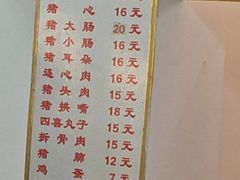 猪心 16元
猪大肠 20元
猪小肠 16元
猪耳朵 16元
连心肉 16元
猪头肉 15元
猪拱嘴 18元
四喜丸子 15元
折骨肉 15元
猪肺 12元
鸡蛋 7元